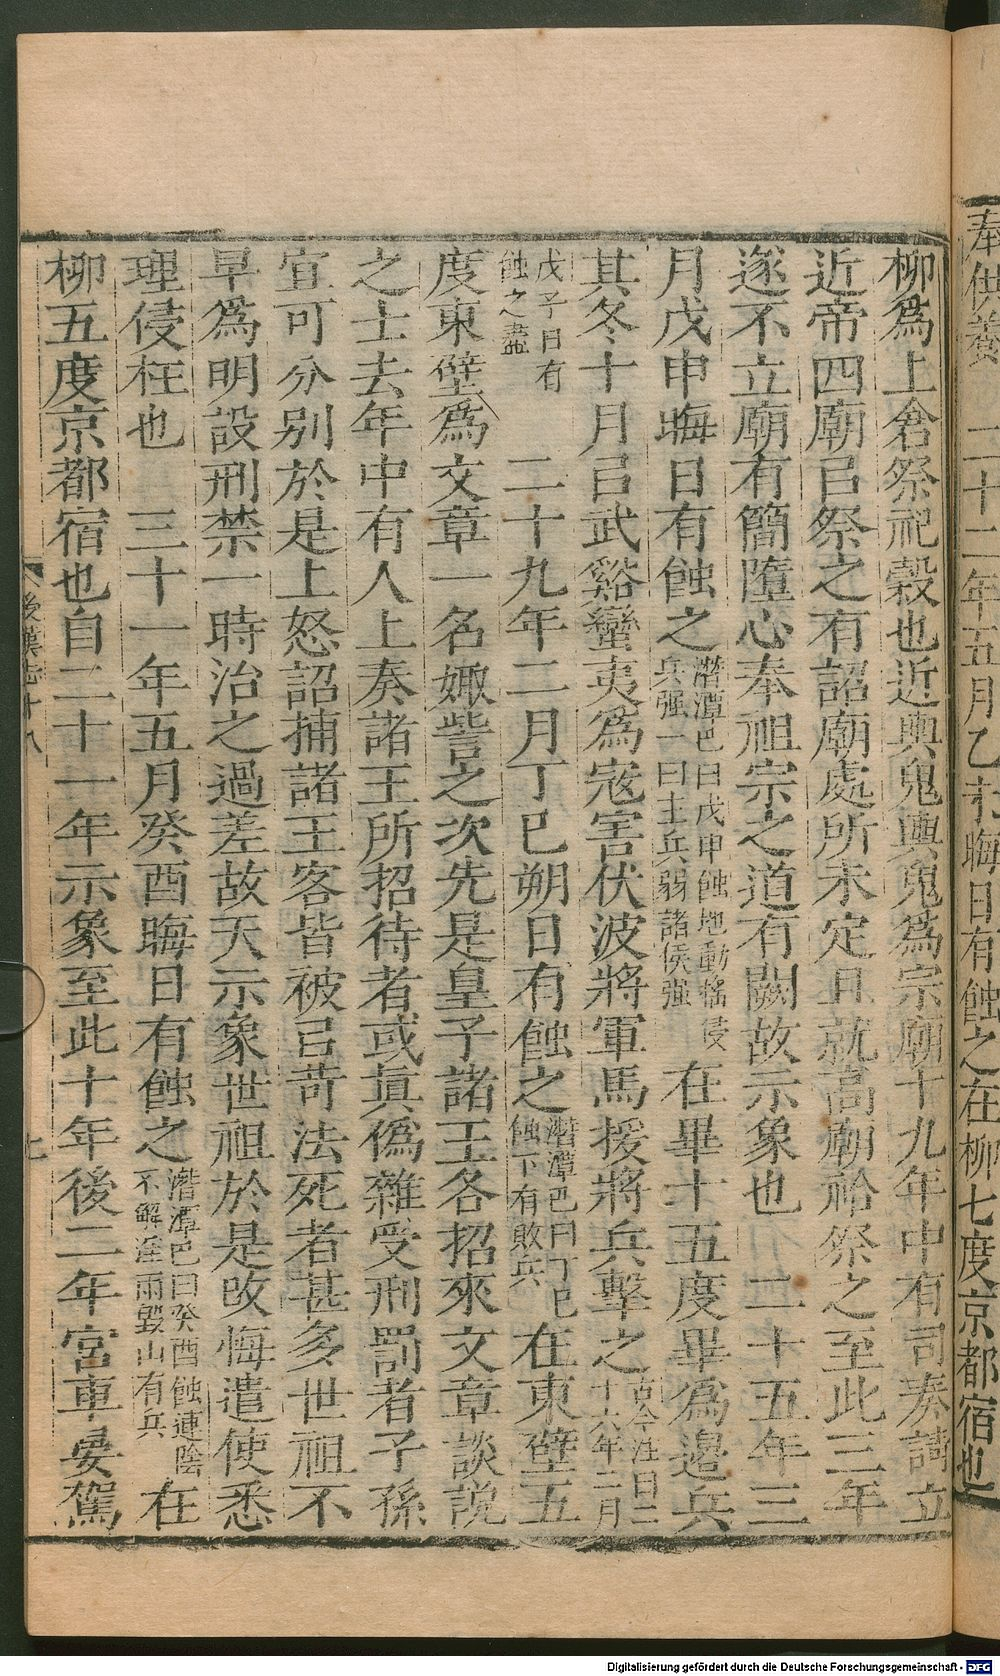 奉供養　二十二年五月乙未晦日有蝕之在柳七度京都宿也
柳爲上倉祭祀穀也近輿鬼輿鬼爲宗廟十九年中有司奏請立
近帝四廟㠯祭之有詔廟處所未定且就高廟祫祭之至此三年
遂不立廟有簡墮心奉祖宗之道有闕故示象也　二十五年三
月戊申晦日有蝕之潛潭巴曰戊申蝕地動搖侵兵强一曰主兵弱諸侯强在畢十五度畢爲邊兵
其冬十月㠯武谿蠻夷爲寇害伏波將軍馬援將兵擊之古今注曰二十六年二月
戊子日有蝕之盡　二十九年二月丁巳朔日有蝕之潛潭巴曰丁巳蝕下有敗兵在東壁五
度東壁爲文章一名娵訾之次先是皇子諸王各招來文章談說
之士去年中有人上奏諸王所招待者或眞僞雜受刑罰者子孫
宜可分别於是上怒詔捕諸王客皆被㠯苛法死者甚多世祖不
早爲明設刑禁一時治之過差故天示象世祖於是改悔遣使悉
理侵枉也　三十一年五月癸酉晦日有蝕之潛潭巴曰癸酉蝕連陰不解淫雨毀山有兵在
柳五度京都宿也自二十一年示象至此十年後二年宮車晏駕
後漢志十八
七
Digitalisierung gefördert durch die Deutsche Forschungsgemeinschaft - DFG